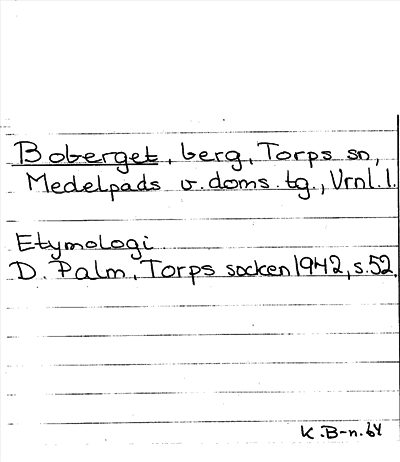 Boberget, berg, Torps sn,
Medelpads v. doms. tg., Vrnl. l.
Etymologi
D. Palm, Torps socken 1942, s. 52.
K. B-n. 64